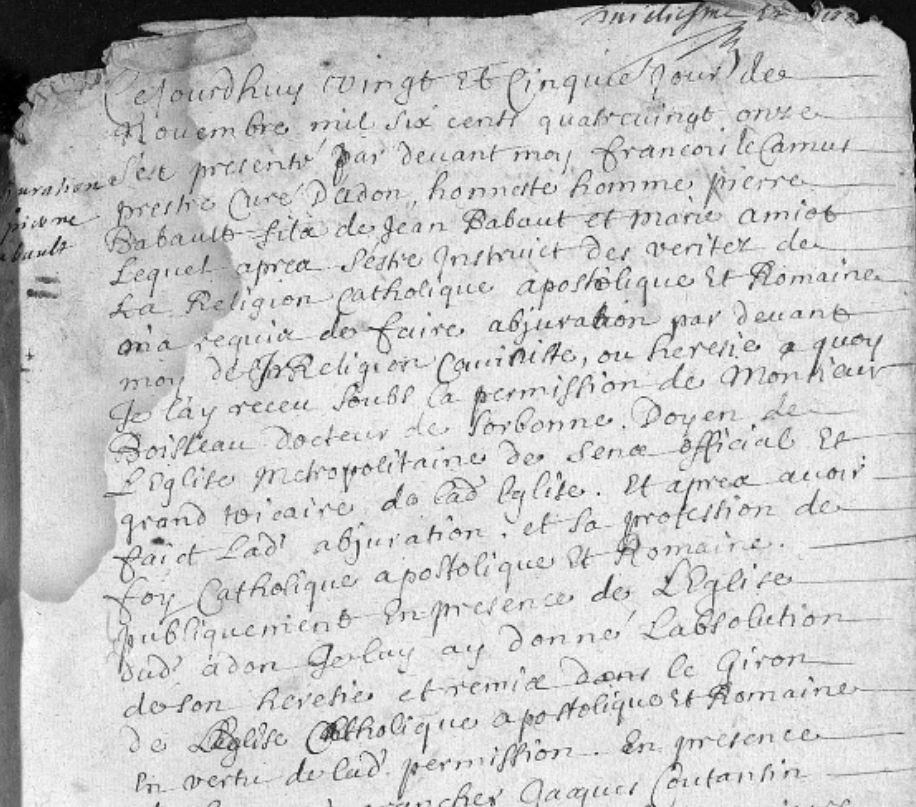 Cejourdhuy vingt et Cinquie jour de
Novembre mil six cents quatrevingt onze
s'est presenté par devant moy francois le Camus
prestre Curé Dadon, honneste homme pierre
Babault fils de Jean Babaut et Marie amiot
Lequel apres s'estre Instruict des veritez de
La Religion Catholique apostolique Et Romaine
m'a requis de faire abjuration par devant
moy de la Religion Calviniste, ou heresie a quoy
Je lay receu soubs la permission de Monsieur
Boisleau docteur de Sorbonne. Doyen de
L'Eglise Metropolitaine de Sens official Et
grand vicaire de lad Eglise. Et apres avoir
faict Lad abjuration. et sa profession de
foy Catholique apostolique Et Romaine.
publiquement En presence de L'Eglise
dud adon Je luy ay donné Labsolution
de son heresie et remis dans le Giron
de L'Eglise Catholique apostolique Et Romaine
En vertu de lad permission. En presence
Jacques Coutansin
juration
pierre
bault